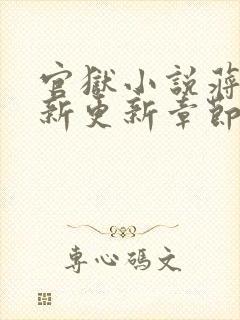 官獄小說蔣
新更新章節
專心碼文